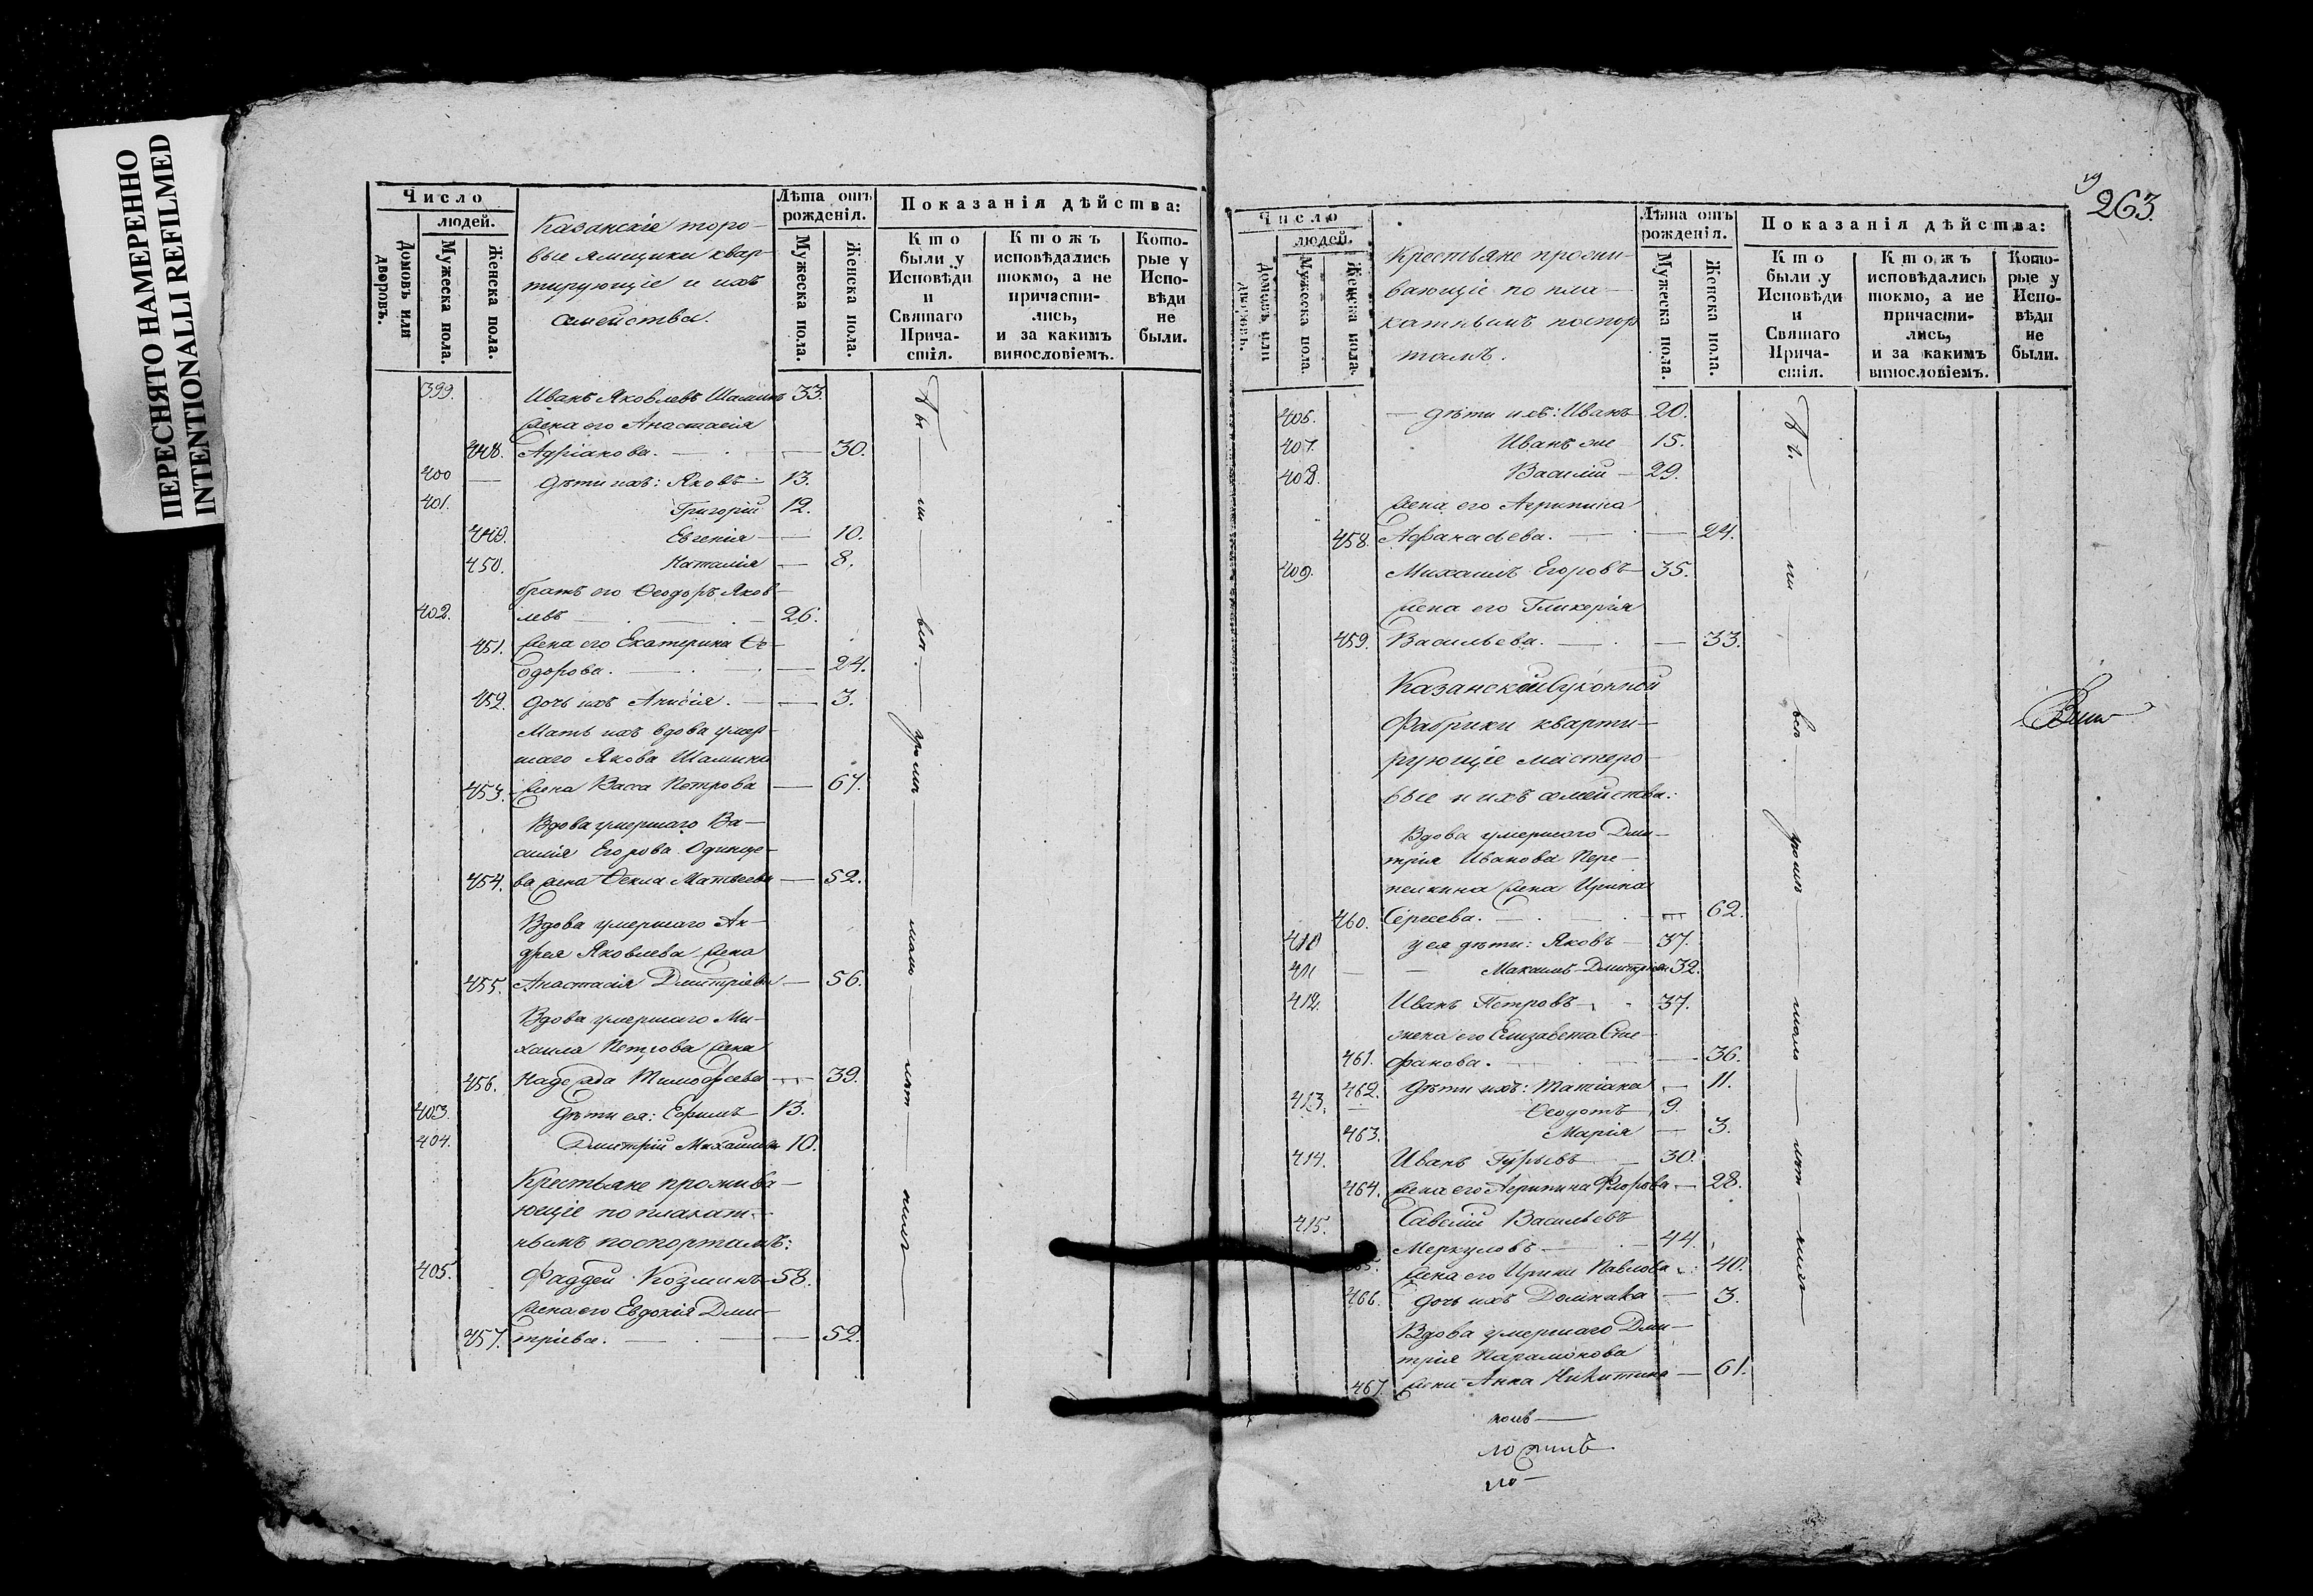 ПЕРЕСНЯТО НАМЕРЕННО
INTENTIONALLI REFILMED
Число
людей.
Домовъ или дворовъ.
Мужеска пола.
Женска пола.
Казанскіе торо-
вые ямщики квар-
тирующіе и ихъ
семейства.
Лѣта отъ рожденія.
Мужеска пола.
Женска пола.
Показанія дѣйства:
Кто были у Исповѣди и Святаго Причастія.
Ктожъ исповѣдались токмо, а не причастились, и за какимъ винословіемъ.
Которые у Исповѣди не были.
399. Иванъ Яковлевъ Шаминъ 33.
жена его Анастасія
448. Адріанова. — 30.
400 — дѣти ихъ: Яковъ — 13.
401. Григорій 12.
449. Евгенія — 10.
450. Наталія — 8.
братъ его Ѳеодоръ Яков-
402. левъ — 26.
451. жена его Екатерина Ѳе-
одорова. — 24.
452. дочь ихъ Анисія. — 3.
Мать ихъ вдова умер-
шаго Якова Шамина
453. жена Васса Петрова — 67.
Вдова умершаго Ва-
силія Егорова Одинце-
454. ва жена Ѳекла Матвеева — 52.
Вдова умершаго Ан-
дрея Яковлева жена
455. Анастасія Дмитріева — 56.
Вдова умершаго Ми-
хаила Петрова жена
456. Надежда Тимофеева — 39.
403. дѣти ея: Ефимъ — 13.
404. Дмитрій Михайловы 10.
Крестьяне прожива-
ющіе по плакат-
нымъ поспортамъ:
405. Фаддей Козминъ — 58.
жена его Евдокія Дми-
457. тріева. — 52.
19
263.
Число
людей.
Домовъ или дворовъ.
Мужеска пола.
Женска пола.
Крестьяне прожи-
вающіе по пла-
катнымъ поспор
тамъ.
Лѣта отъ рожденія.
Мужеска пола.
Женска пола.
Показанія дѣйства:
Кто были у Исповѣди и Святаго Причастія.
Ктожъ исповѣдались токмо, а не причастились, и за какимъ винословіемъ.
Которые у Исповѣди не были.
406. — дѣти ихъ: Иванъ — 20.
407. Иванъ же — 15.
408. Василій — 29.
жена его Агрипина
458. Афанасьева. — 24.
409. Михаилъ Егоровъ — 35.
жена его Гликерія
459. Васильева. — 33.
Казанской Суконной
Фабрики кварти-
рующіе мастеро-
вые и ихъ семейства:
Вдова умершаго Дми-
трія Иванова Пере-
пелкина жена Ирина
460. Сергеева. — 62.
410 у ея дѣти: Яковъ — 37.
411 — Максимъ Дмитріевы 32.
412. Иванъ Петровъ — 37.
жена его Елизавета Сте-
461. фанова. — 36.
462. дѣти ихъ: Татіана — 11.
413. Ѳеодотъ 9.
463. Марія — 3.
414. Иванъ Гурьевъ — 30.
464. жена его Агрипина Флорова — 28.
415. Савелій Васильевъ
Меркуловъ — 44.
жена его Ирина Павлова — 40.
466. дочь ихъ Домника — 3.
Вдова умершаго Дми-
трія Парамонова
467. жена Анна Никитина — 61.